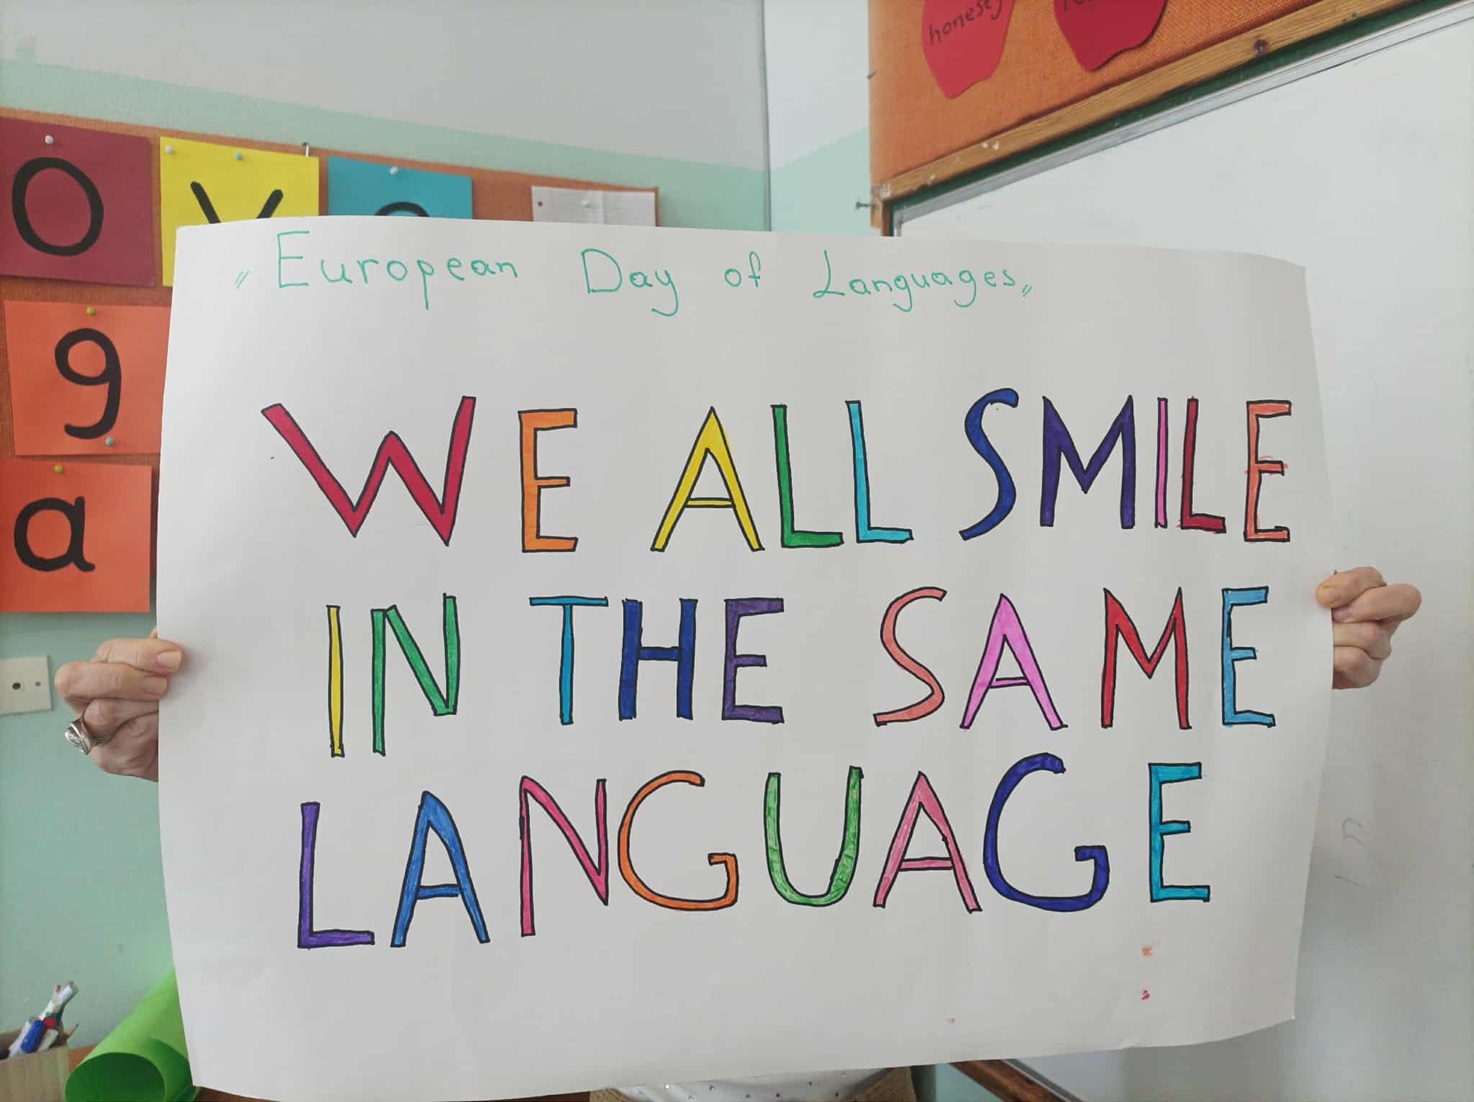 honesty
O
g
a
"European Day of Languages"
WE ALL SMILE
IN THE SAME
LANGUAGE